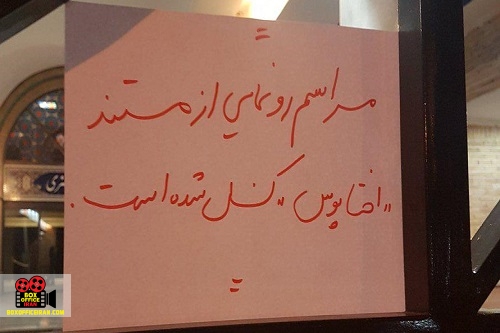 مراسم رونمایی از مستند
"اختاپوس" کنسل شده است.
BOX
OFFICE
IRAN
BOXOFFICEIRAN.COM